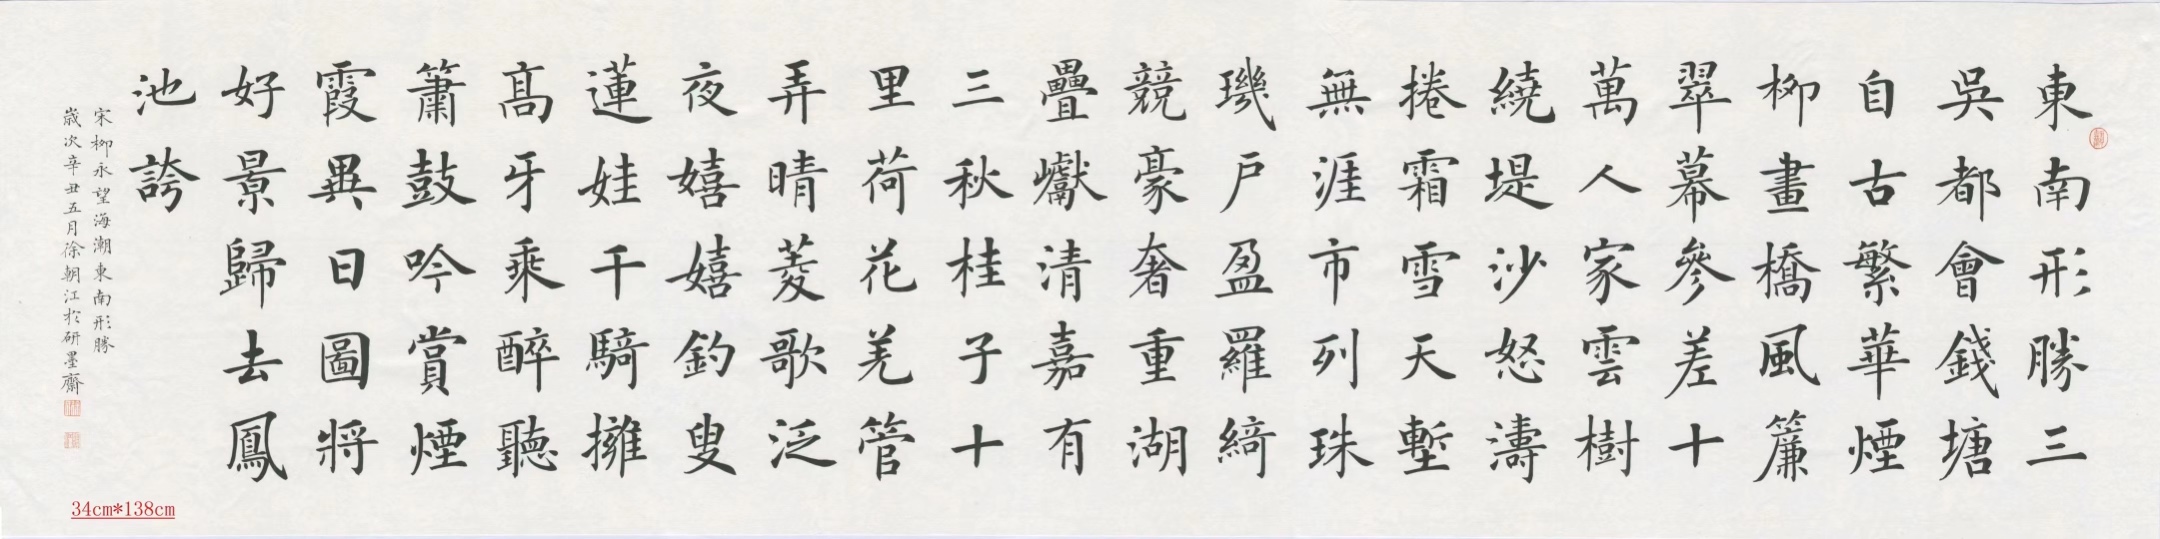 東南形勝三
吳都會錢塘
自古繁華煙
柳畫橋風簾
翠幕參差十
萬人家雲樹
繞堤沙怒濤
捲霜雪天塹
無涯市列珠
璣戶盈羅綺
競豪奢重湖
疊巘清嘉有
三秋桂子十
里荷花羌管
弄晴菱歌泛
夜嬉嬉釣叟
蓮娃千騎擁
高牙乘醉聽
簫鼓吟賞煙
霞異日圖將
好景歸去鳳
池誇
宋柳永望海潮東南形勝
歲次辛丑五月徐朝江於研墨齋
34cm*138cm